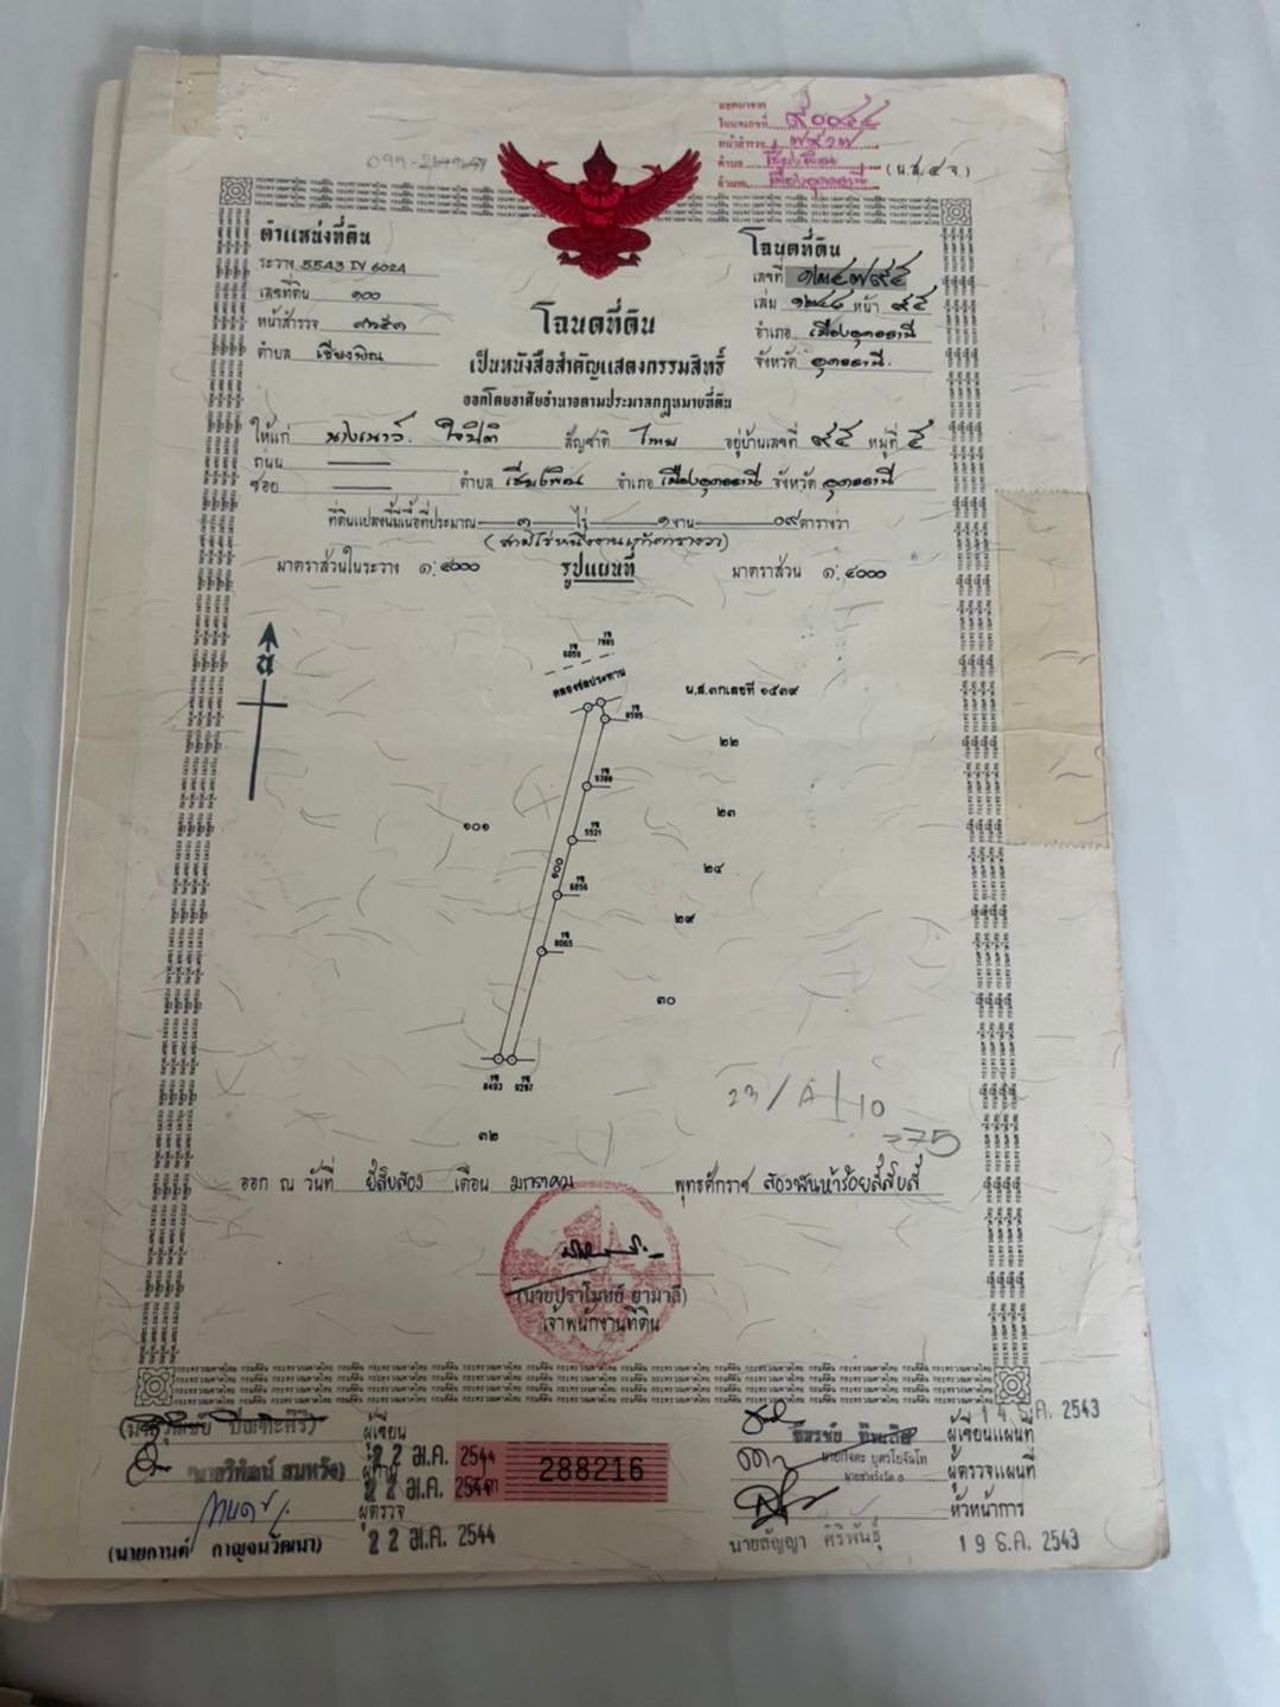 แยกมาจาก
โฉนดเลขที่ ๕๐๐๔๔
หน้าสำรวจ ๗๙๒๗
ตำบล เชียงพิณ
อำเภอ เมืองอุดรธานี
(น.ส.๔ จ.)
ตำแหน่งที่ดิน
ระวาง 5543 IV 6024
เลขที่ดิน ๑๐๐
หน้าสำรวจ
ตำบล เชียงพิณ
โฉนดที่ดิน
เลขที่ ๑๒๔๗๙๔
เล่ม ๑๒๔๘ หน้า ๙๔
อำเภอ เมืองอุดรธานี
จังหวัด อุดรธานี
โฉนดที่ดิน
เป็นหนังสือสำคัญแสดงกรรมสิทธิ์
ออกโดยอาศัยอำนาจตามประมวลกฎหมายที่ดิน
ให้แก่ นางเนาว์ ใจปิติ สัญชาติ ไทย อยู่บ้านเลขที่ ๙๕ หมู่ที่ ๕
ถนน
ซอย ตำบล เชียงพิณ อำเภอ เมืองอุดรธานี จังหวัด อุดรธานี
ที่ดินแปลงนี้มีเนื้อที่ประมาณ ๓ ไร่ ๑ งาน ๐๙ ตารางวา
(สามไร่หนึ่งงานเก้าตารางวา)
มาตราส่วนในระวาง ๑:๔๐๐๐ รูปแผนที่ มาตราส่วน ๑:๔๐๐๐
น
คลองชลประทาน
น.ส.๓ก เลขที่ ๑๕๓๙
๒๒
๒๓
๑๐๑
๑๐๐
๒๔
๒๙
8065
๓๐
8493 9297
23/A
10
=75
๓๒
ออก ณ วันที่ ยี่สิบสอง เดือน มกราคม พุทธศักราช สองพันห้าร้อยสี่สิบสี่
(นายปราโมทย์ ยามาลี)
เจ้าพนักงานที่ดิน
ผู้เขียน
22 ม.ค. 2544
22 ม.ค. 2544
ผู้ตรวจ
22 ม.ค. 2544
(นายกานต์ กาญจนวัฒนา)
288216
14 ธ.ค. 2543
ผู้เขียนแผนที่
ผู้ตรวจแผนที่
หัวหน้าการ
นายสัญญา ศิริพันธุ์
19 ธ.ค. 2543